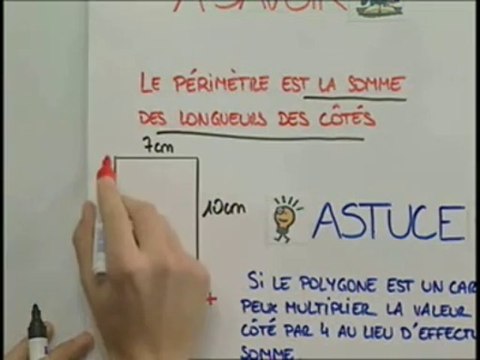 A SAVOIR
LE PÉRIMÈTRE EST LA SOMME
DES LONGUEURS DES CÔTÉS
7cm
10cm
ASTUCE
+
SI LE POLYGONE EST UN CAR
PEUX MULTIPLIER LA VALEUR
CÔTÉ PAR 4 AU LIEU D'EFFECTU
SOMME